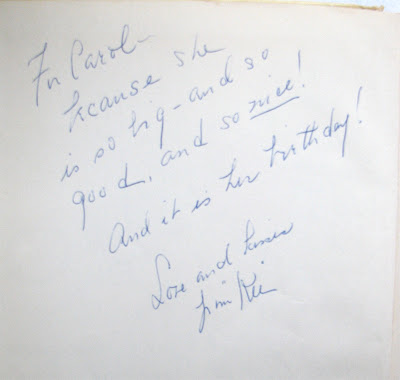 For Carol-
because she
is so big - and so
good, and so nice!
And it is her birthday!
Love and kisses